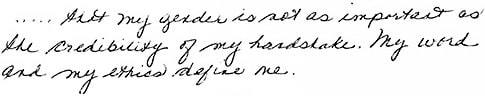 ..... that my gender is not as important as
the credibility of my handshake. My word
and my ethics define me.